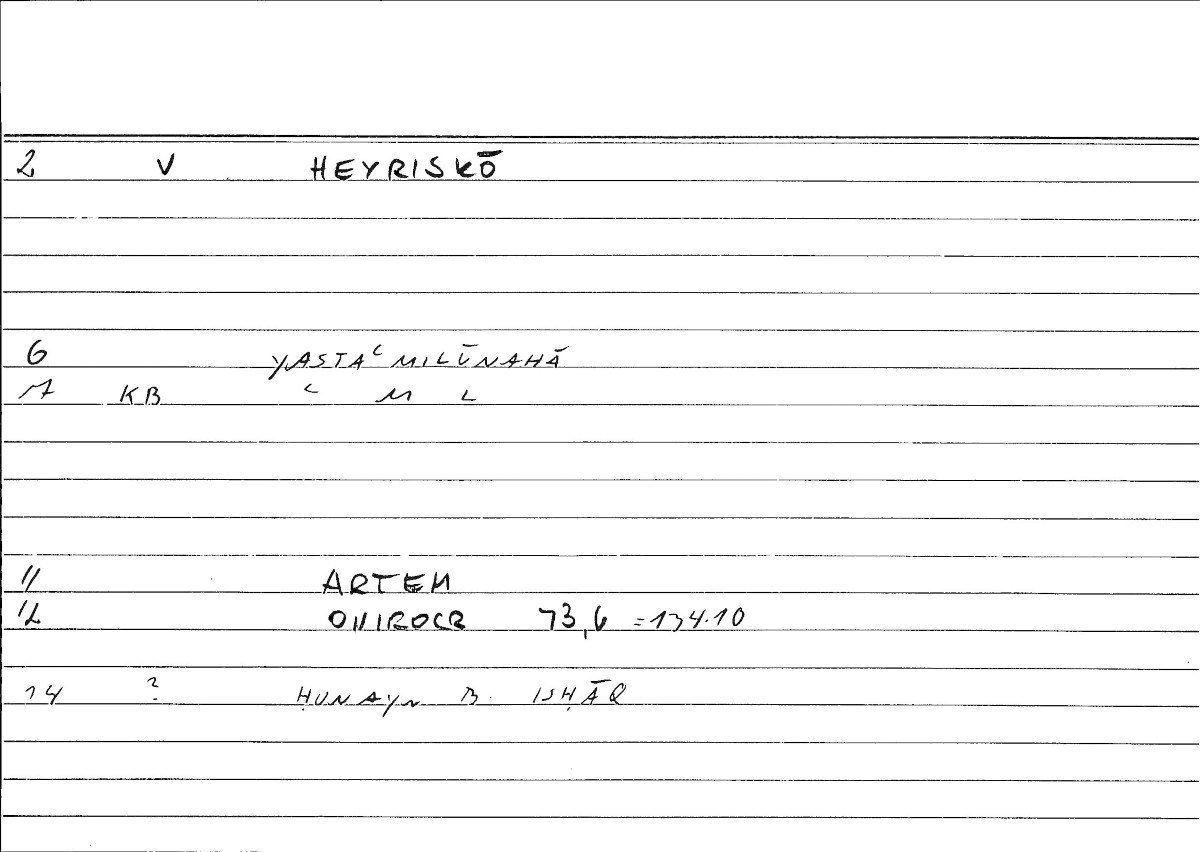 2 V HEYRISKŌ
6 YASTAʿMILŪNAHĀ
7 KB ʿ M L
11 ARTEM
12 ONIROCR 73,6 =134.10
14 ? ḤUNAYN B. ISḤĀQ